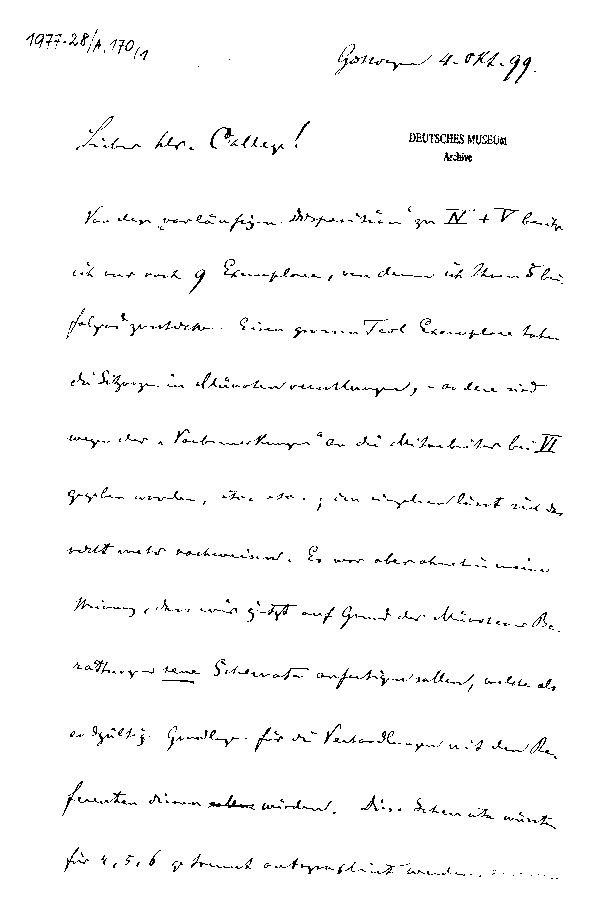 1977-28/A,170/1
Göttingen 4. Okt. 99.
Lieber Hr. College!
DEUTSCHES MUSEUM
Archive
Von den „vorläufigen Dispositionen" zu IV + V besitze
ich nur noch 9 Exemplare, von denen ich Ihnen 5 bei
folgend zuschicke. Einen grossen Teil Exemplare haben
die Sitzungen in München verschlungen, – andere sind
wegen der „Vorbemerkungen" an die Mitarbeiter bei VI
gegeben worden, etc. etc.; im einzelnen lässt sich das
nicht mehr nachweisen. Es war aber ohnehin meine
Meinung, dass wir jetzt auf Grund der Münchener Be-
rathungen neue Schemata anfertigen sollen, welche als
endgültige Grundlage für die Verhandlungen mit den Re-
ferenten dienen würden. Diese Schemata müssten
für 4, 5, 6 getrennt autographiert werden.